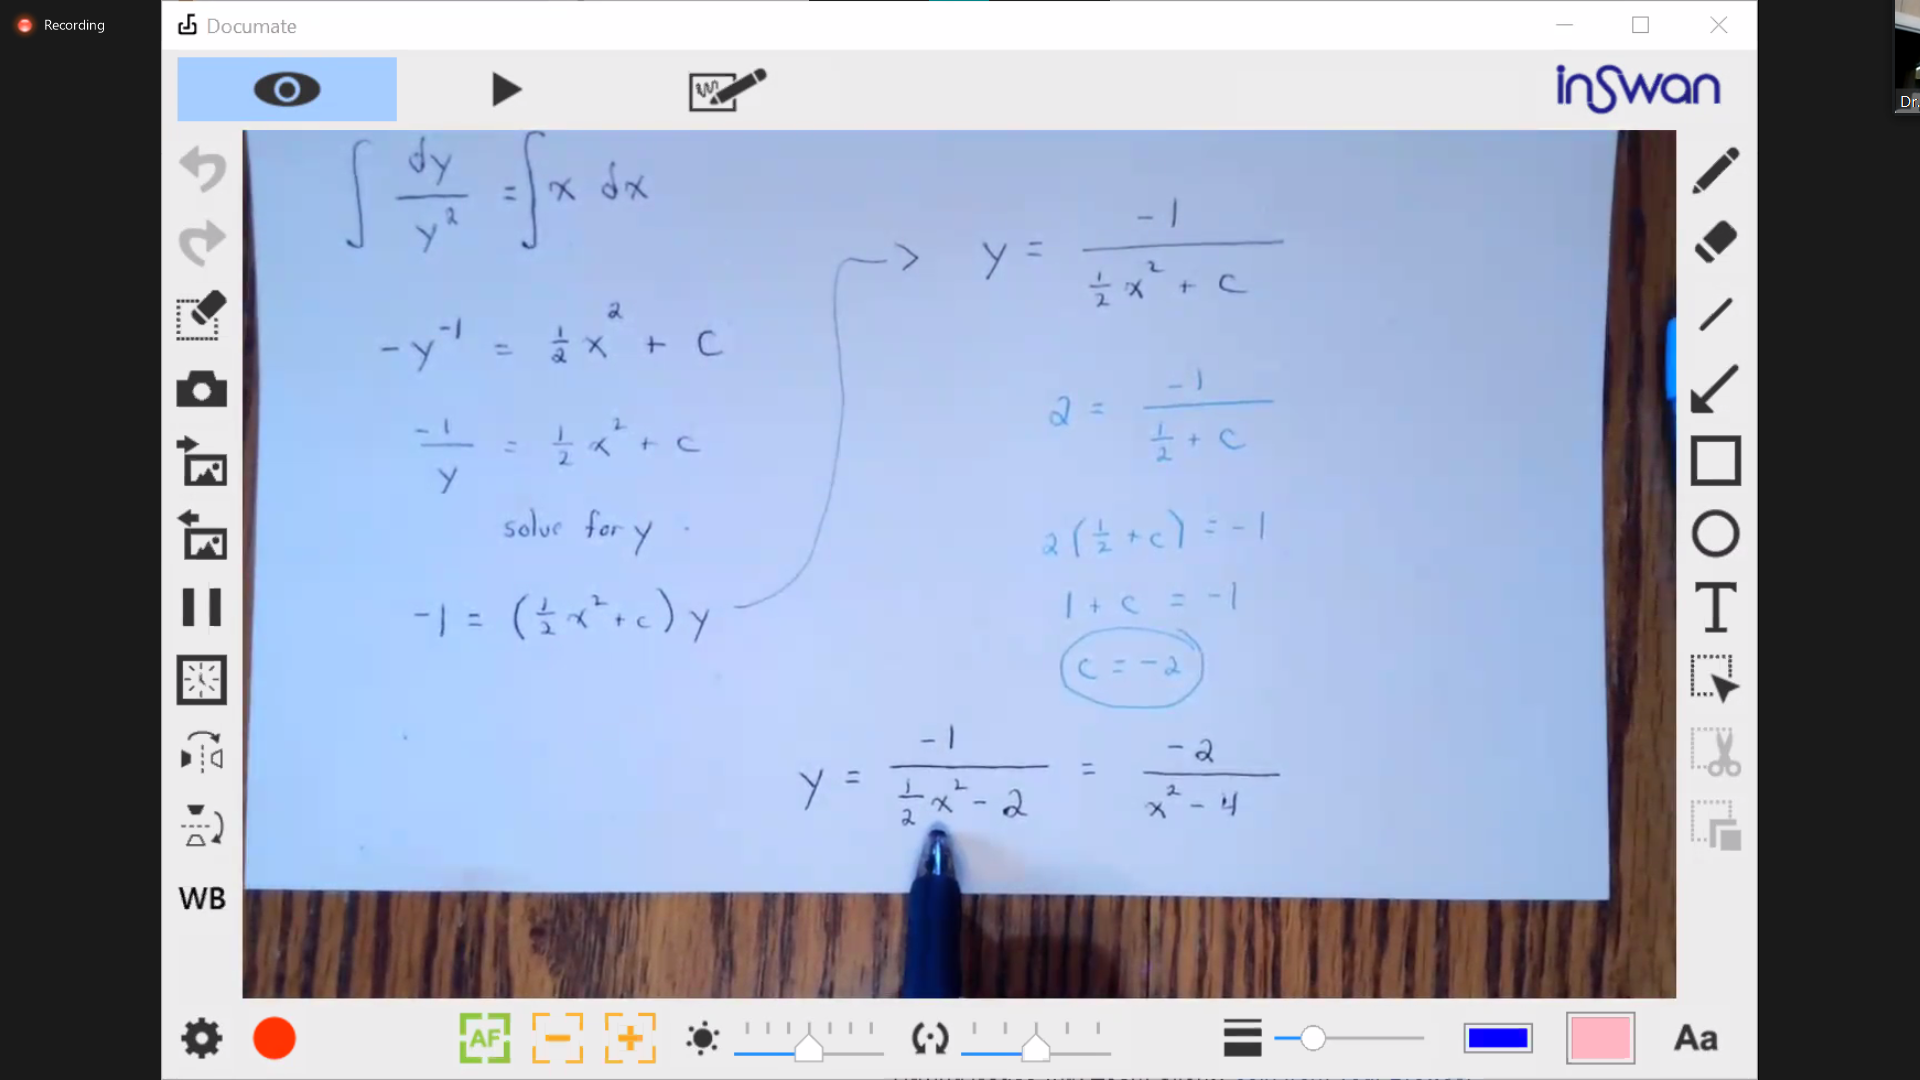 Recording
Documate
inSwan
Dr.
∫ dy/y² = ∫ x dx
-y⁻¹ = ½ x² + C
-1/y = ½ x² + C
solve for y
-1 = (½ x² + c) y
y = -1/(½ x² + C)
2 = -1/(½ + C)
2(½ + c) = -1
1 + c = -1
c = -2
y = -1/(½ x² - 2) = -2/(x² - 4)
WB
T
AF
Aa